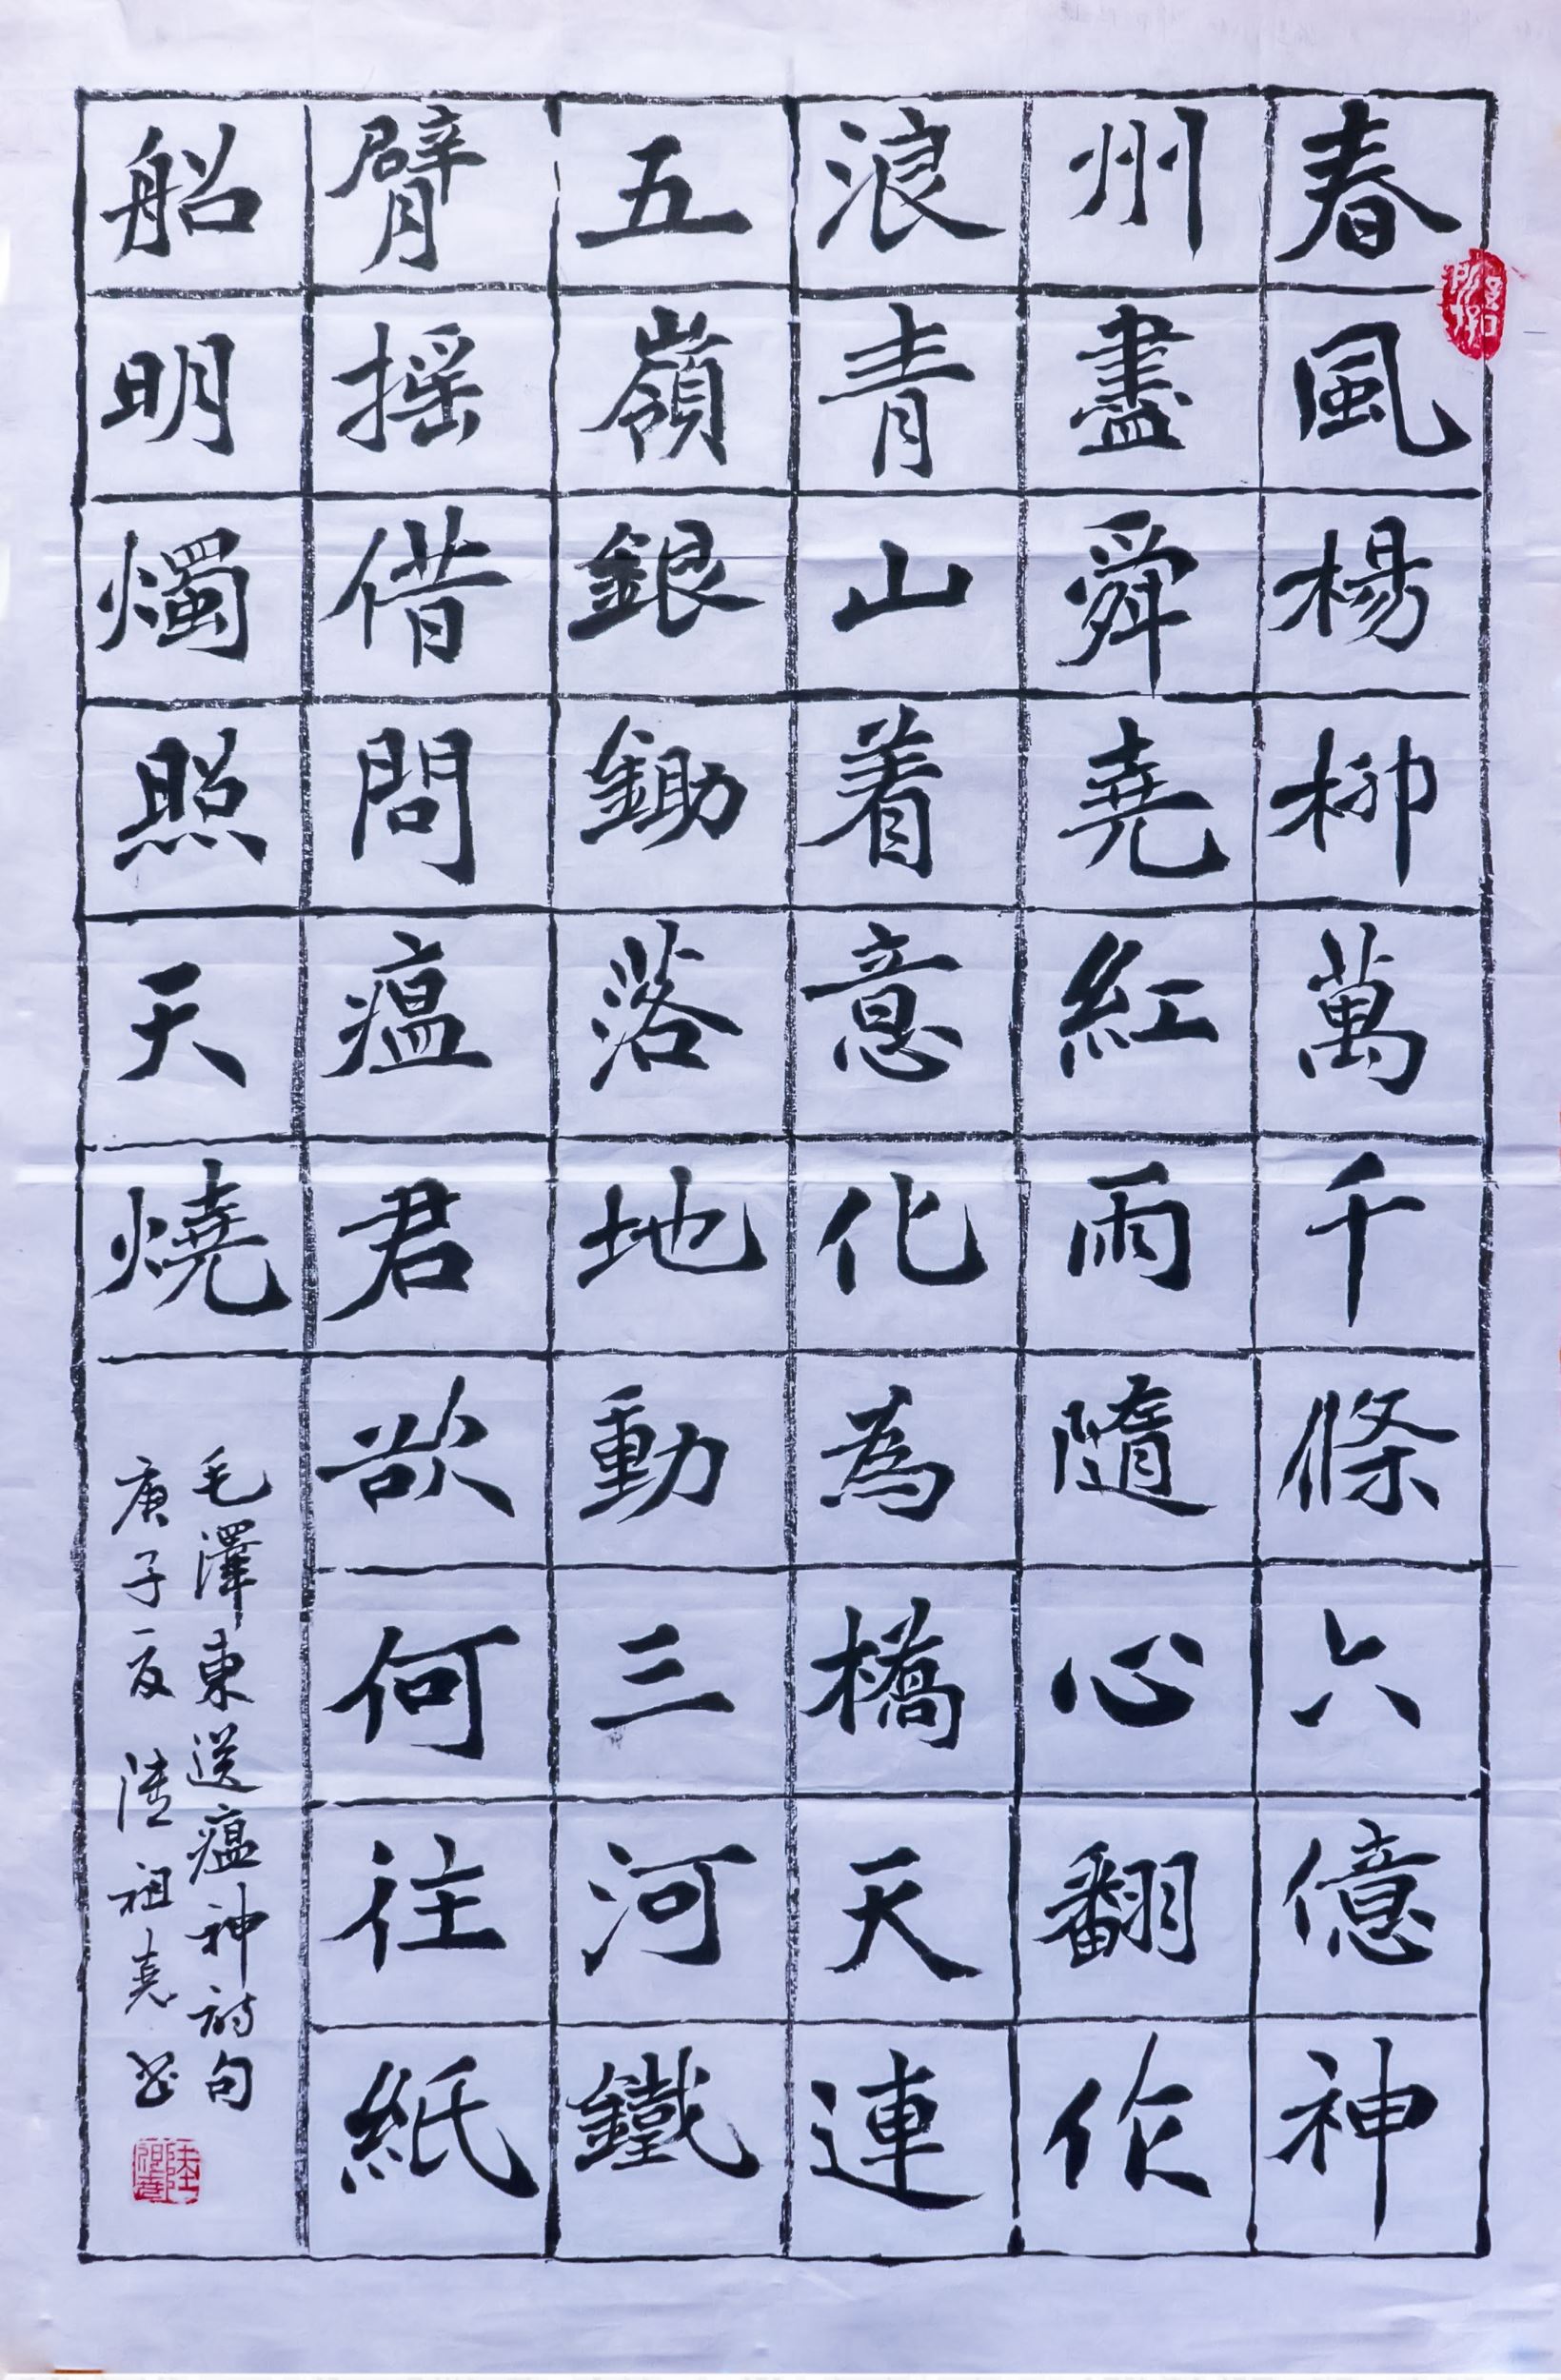 春風楊柳萬千條六億神
州盡舜堯紅雨隨心翻作
浪青山着意化為橋天連
五嶺銀鋤落地動三河鐵
臂摇借問瘟君欲何往紙
船明燭照天燒
毛澤東送瘟神詩句
庚子夏 陸祖堯书